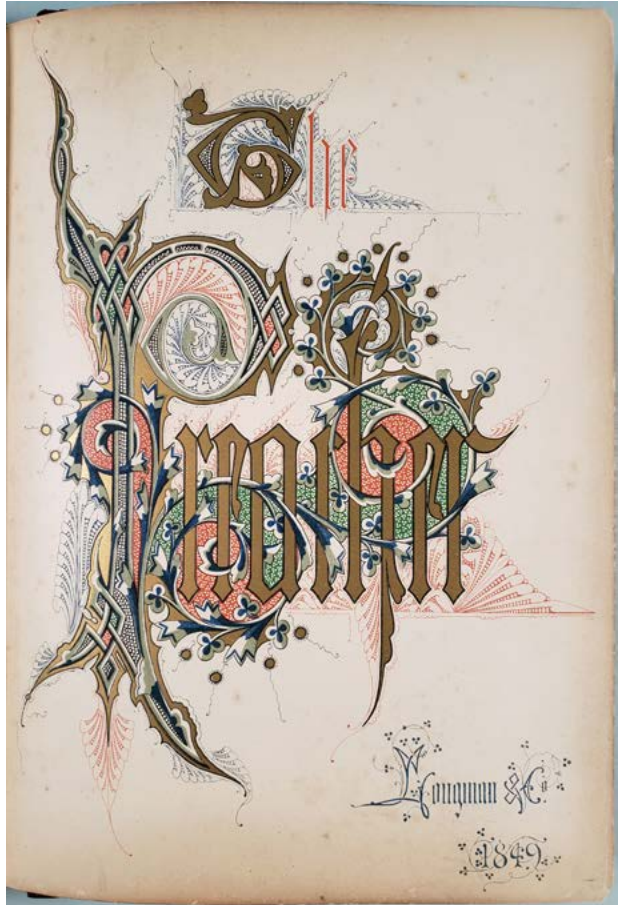 The
Preacher
Longman & Co.
1849.